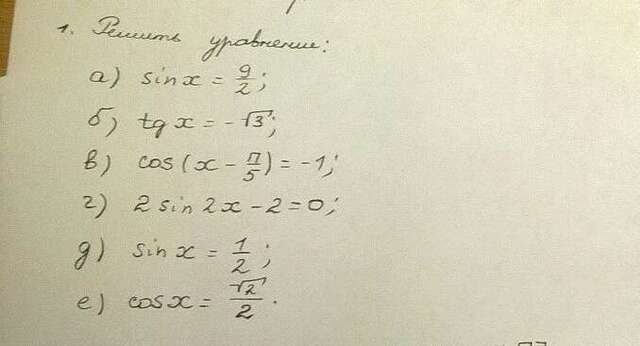 1. Решить уравнение:
а) sin x = 9/2;
б) tg x = -√3;
в) cos(x - π/5) = -1;
г) 2 sin 2x - 2 = 0;
д) sin x = 1/2;
е) cos x = √2/2.